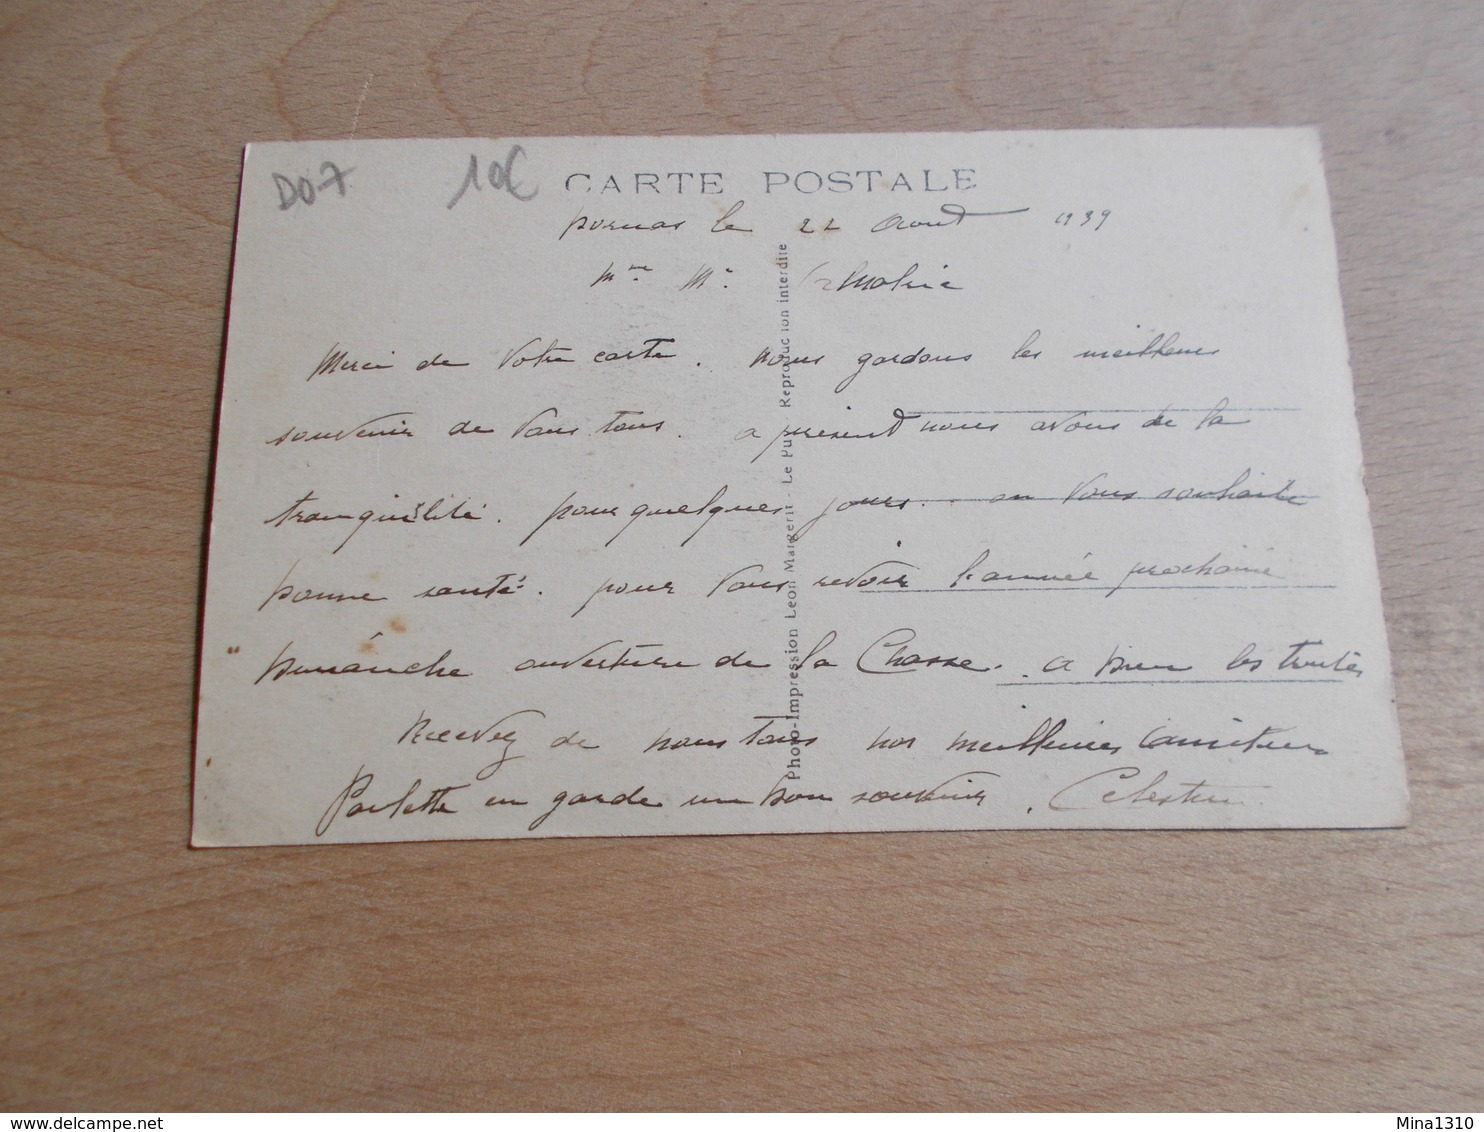 DO7 10€
CARTE POSTALE
le 22 Aout 1939
Mme Mr
Merci de Votre carte. nous gardons les meilleurs
souvenir de Vous tous. a present nous avons de la
tranquilité. pour quelques jours. on Vous souhaite
bonne santé. pour Vous revoir l'année prochaine
Dimanche ouverture de la Chasse. a bien les truites
Recevez de nous tous nos meilleures
Paulette en garde un bon souvenir. Celestin
Photo-Impression Léon Margerit - Le Puy - Reproduction interdite
Mina1310